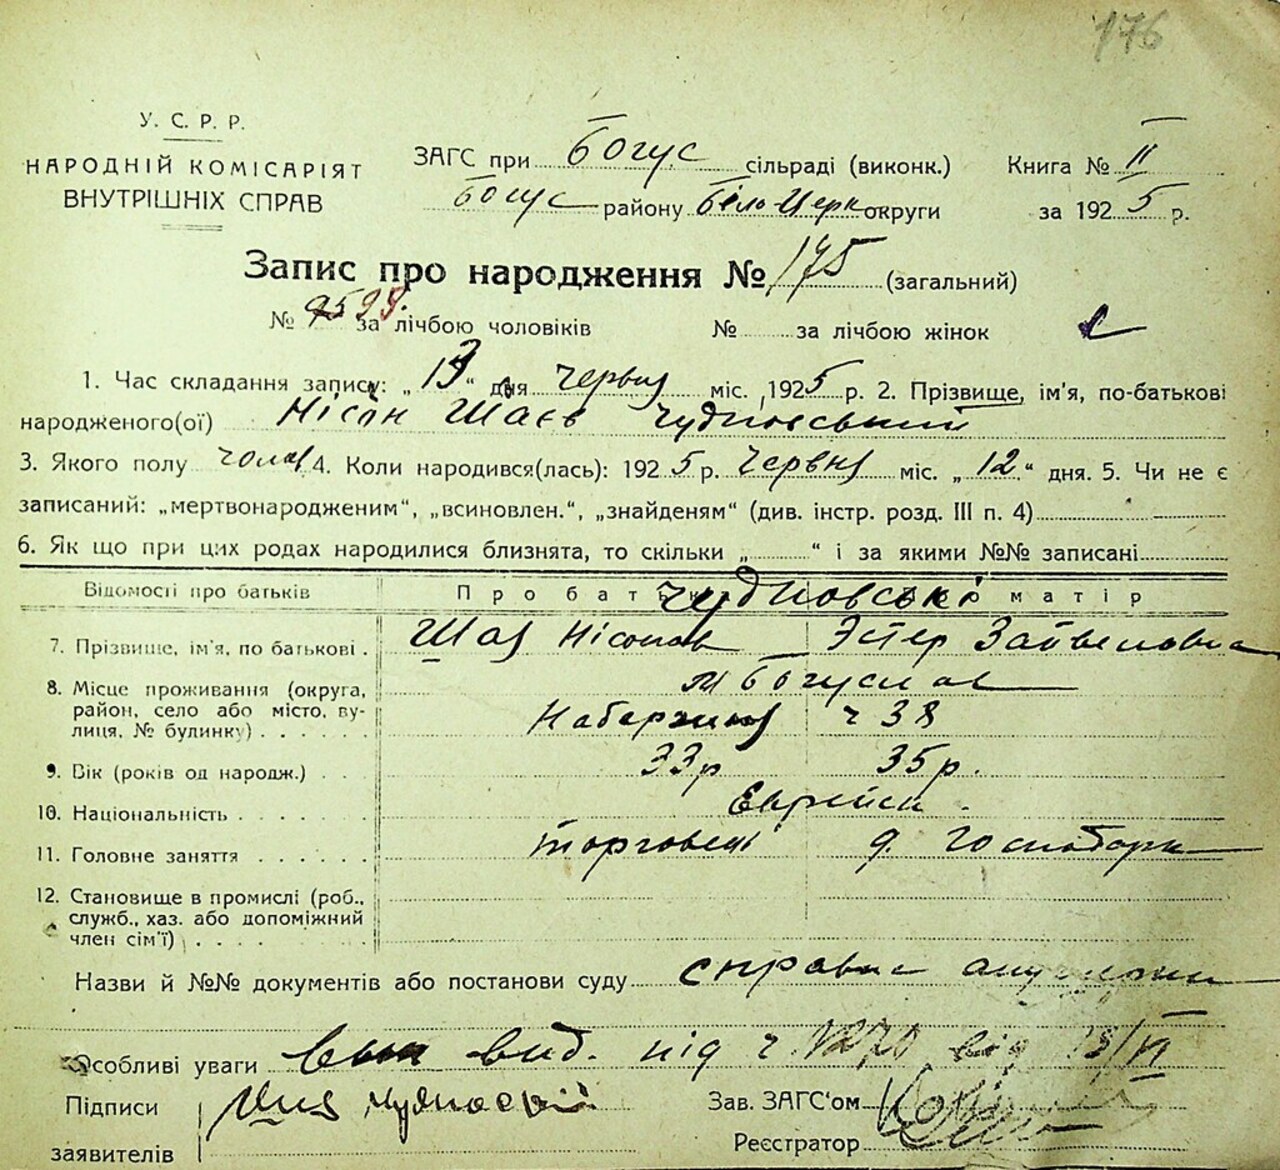 176
У. С. Р. Р.
НАРОДНІЙ КОМІСАРІЯТ
ВНУТРІШНІХ СПРАВ
ЗАГС при Богус сільраді (виконк.)
Богус району Біло-Церк округи
Книга № II
за 1925 р.
Запис про народження № 175 (загальний)
№ 95 за лічбою чоловіків № за лічбою жінок
1. Час складання запису: „13“ дня червня міс. 1925 р. 2. Прізвище, ім'я, по-батькові
народженого(ої) Нісон Шаєв Чудновський
3. Якого полу чолов 4. Коли народився(лась): 1925 р. червня міс. „12“ дня. 5. Чи не є
записаний: „мертвонародженим“, „всиновлен.“, „знайденям“ (див. інстр. розд. III п. 4)
6. Як що при цих родах народилися близнята, то скільки „ “ і за якими №№ записані
Відомості про батьків Про батька Про матір
Чудновські
7. Прізвище, ім'я, по батькові . Шая Нісонов Эстер Зайвеловна
8. Місце проживання (округа, район, село або місто, вулиця, № будинку) . . . . . . м Богуслав
Набержна ч 38
9. Вік (років од народж.) . . . 33 р 35 р.
10. Національність . . . . . . Евреіи
11. Головне заняття . . . . . . торговець д. Господарка
12. Становище в промислі (роб., служб., хаз. або допоміжний член сім'ї) . . . .
Назви й №№ документів або постанови суду справка
Особливі уваги вид. під ч 1270 від 13/VI
Підписи
заявителів Чудновский
Зав. ЗАГС'ом
Реєстратор